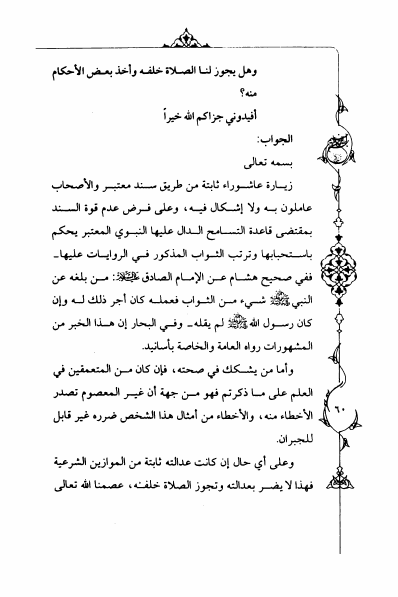 وهل يجوز لنا الصلاة خلفه وأخذ بعض الأحكام
منه؟
أفيدوني جزاكم الله خيراً
الجواب:
بسمه تعالى
زيارة عاشوراء ثابتة من طريق سند معتبر والأصحاب
عاملون به ولا إشكال فيه، وعلى فرض عدم قوة السند
بمقتضى قاعدة التسامح الدال عليها النبوي المعتبر يحكم
باستحبابها وترتب الثواب المذكور في الروايات عليها-
ففي صحيح هشام عن الإمام الصادق عليه السلام: من بلغه عن
النبي ﷺ شيء من الثواب فعمله كان أجر ذلك له وإن
كان رسول الله ﷺ لم يقله- وفي البحار إن هذا الخبر من
المشهورات رواه العامة والخاصة بأسانيد.
وأما من يشكك في صحته، فإن كان من المتعمقين في
العلم على ما ذكرتم فهو من جهة أن غير المعصوم تصدر
الأخطاء منه، والأخطاء من أمثال هذا الشخص ضرره غير قابل
للجبران.
وعلى أي حال إن كانت عدالته ثابتة من الموازين الشرعية
فهذا لا يضر بعدالته وتجوز الصلاة خلفه، عصمنا الله تعالى
٦٠